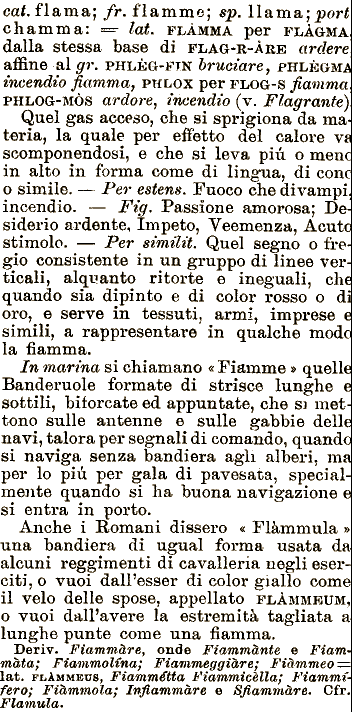 cat. flama; fr. flamme; sp. llama; port
chamma: = lat. FLÀMMA per FLÀGMA,
dalla stessa base di FLAG-R-ÀRE ardere
affine al gr. PHLÈG-EIN bruciare, PHLÈGMA
incendio fiamma, PHLOX per FLOG-S fiamma,
PHLOG-MÒS ardore, incendio (v. Flagrante)
Quel gas acceso, che si sprigiona da ma-
teria, la quale per effetto del calore va
scomponendosi, e che si leva piú o meno
in alto in forma come di lingua, di cono
o simile. — Per estens. Fuoco che divampi,
incendio. — Fig. Passione amorosa; De-
siderio ardente, Impeto, Veemenza, Acuto
stimolo. — Per similit. Quel segno o fre-
gio consistente in un gruppo di linee ver-
ticali, alquanto ritorte e ineguali, che
quando sia dipinto e di color rosso o di
oro, e serve in tessuti, armi, imprese e
simili, a rappresentare in qualche modo
la fiamma.
In marina si chiamano «Fiamme» quelle
Banderuole formate di strisce lunghe e
sottili, biforcate ed appuntate, che si met-
tono sulle antenne e sulle gabbie delle
navi, talora per segnali di comando, quando
si naviga senza bandiera agli alberi, ma
per lo piú per gala di pavesata, special-
mente quando si ha buona navigazione e
si entra in porto.
Anche i Romani dissero « Flàmmula »
una bandiera di ugual forma usata da
alcuni reggimenti di cavalleria negli eser-
citi, o vuoi dall'esser di color giallo come
il velo delle spose, appellato FLÀMMEUM,
o vuoi dall'avere la estremità tagliata a
lunghe punte come una fiamma.
Deriv. Fiammàre, onde Fiammànte e Fiam-
màta; Fiammolína; Fiammeggiàre; Fiàmmeo =
lat. FLÀMMEUS, Fiammétta Fiammicèlla; Fiammí-
fero; Fiàmmola; Infiammàre e Sfiammàre. Cfr.
Flamula.